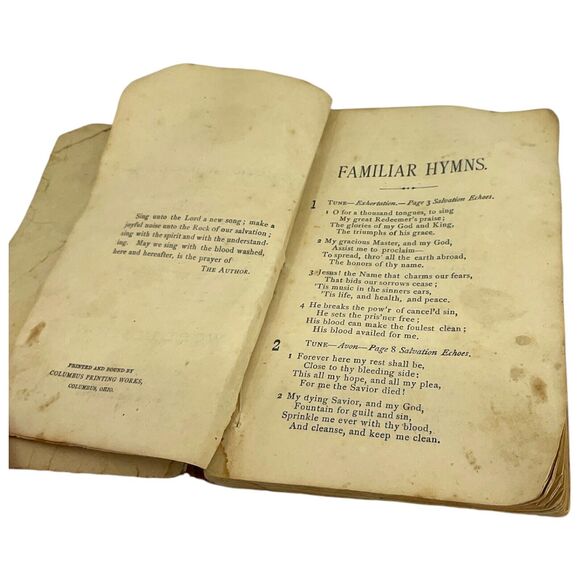 Sing unto the Lord a new song; make a
joyful noise unto the Rock of our salvation;
sing with the spirit and with the understand-
ing. May we sing with the blood washed,
here and hereafter, is the prayer of
THE AUTHOR.
PRINTED AND BOUND BY
COLUMBUS PRINTING WORKS,
COLUMBUS, OHIO.
FAMILIAR HYMNS.
1 TUNE—Exhortation.—Page 3 Salvation Echoes.
1 O for a thousand tongues, to sing
My great Redeemer's praise;
The glories of my God and King,
The triumphs of his grace.
2 My gracious Master, and my God,
Assist me to proclaim—
To spread, thro' all the earth abroad,
The honors of thy name.
3 Jesus! the Name that charms our fears,
That bids our sorrows cease;
'Tis music in the sinners ears,
'Tis life, and health, and peace.
4 He breaks the pow'r of cancel'd sin,
He sets the pris'ner free;
His blood can make the foulest clean;
His blood availed for me.
2 TUNE—Avon—Page 8 Salvation Echoes.
1 Forever here my rest shall be,
Close to thy bleeding side;
This all my hope, and all my plea,
For me the Savior died!
2 My dying Savior, and my God,
Fountain for guilt and sin,
Sprinkle me ever with thy blood,
And cleanse, and keep me clean.